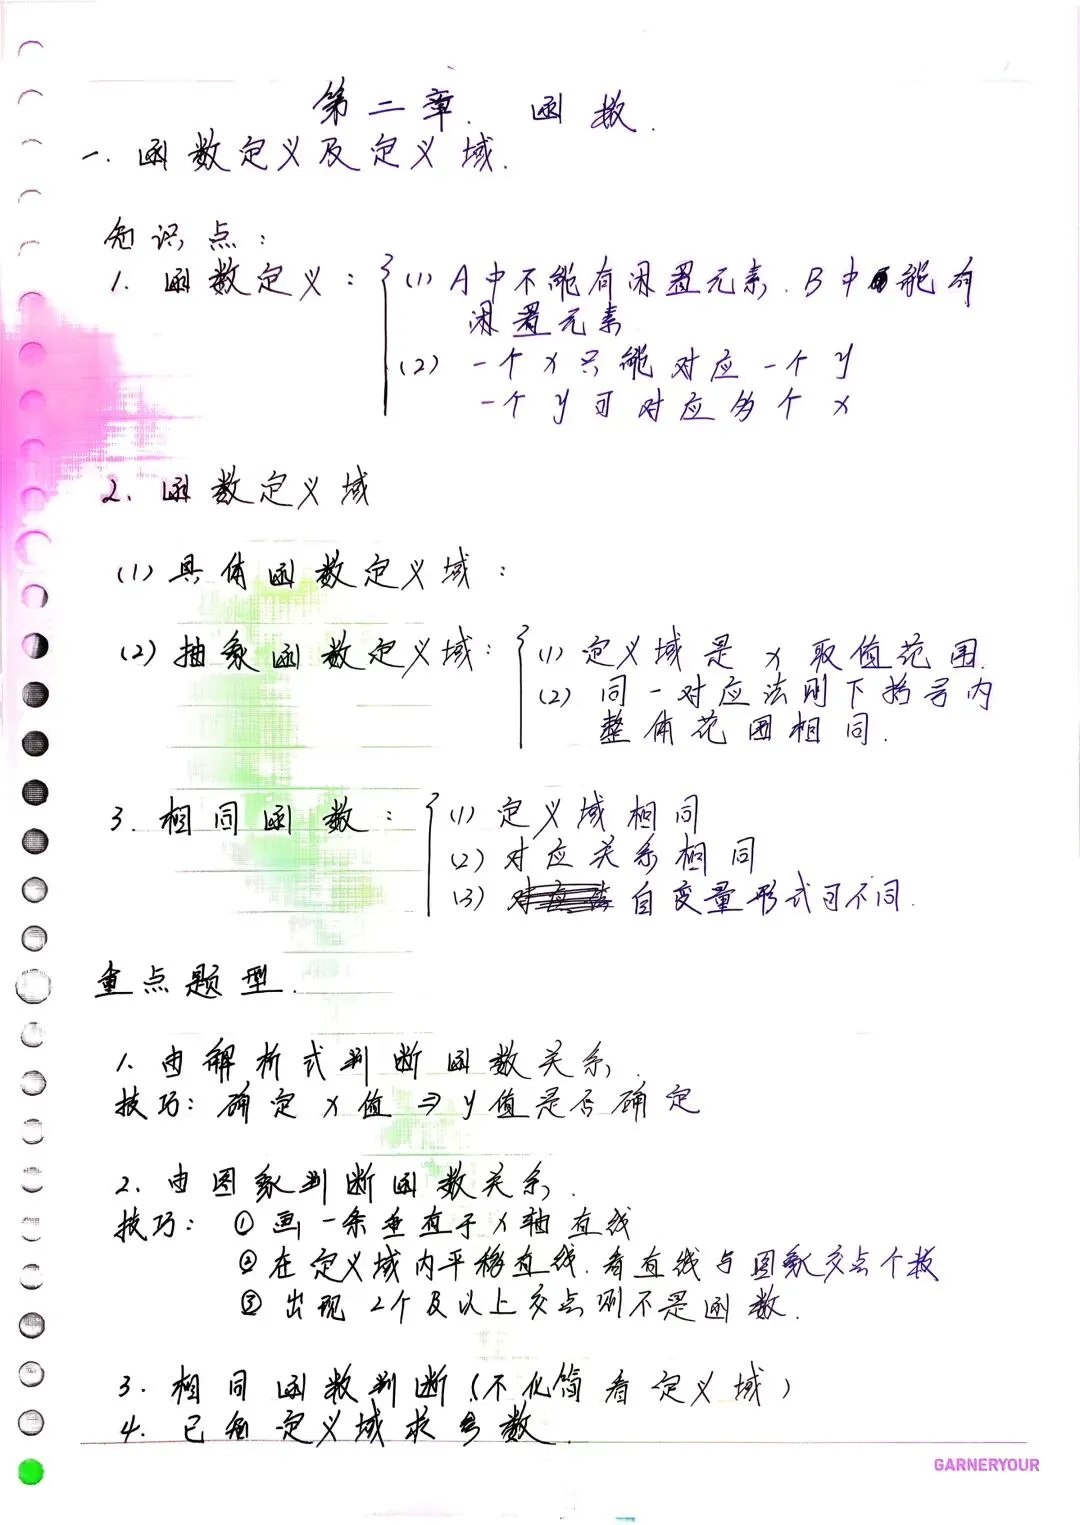 第二章. 函数.
一. 函数定义及定义域.
知识点:
1. 函数定义: { (1) A中不能有闲置元素. B中能有
闲置元素
(2) 一个x只能对应一个y
一个y可对应多个x
2. 函数定义域
(1) 具体函数定义域:
(2) 抽象函数定义域: { (1) 定义域是x取值范围.
(2) 同一对应法则下括号内
整体范围相同.
3. 相同函数: { (1) 定义域相同
(2) 对应关系相同
(3) 自变量形式可不同.
重点题型.
1. 由解析式判断函数关系.
技巧: 确定x值 ⇒ y值是否确定
2. 由图象判断函数关系.
技巧: ① 画一条垂直于x轴直线
② 在定义域内平移直线. 看直线与图象交点个数
③ 出现2个及以上交点则不是函数.
3. 相同函数判断 (不化简看定义域)
4. 已知定义域求参数.
GARNERYOUR